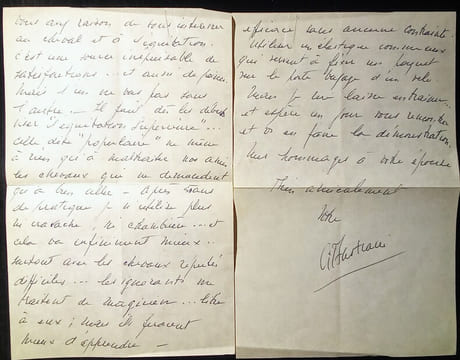 vous avez raison de vous intéresser
au cheval et à l'équitation.
C'est une source inépuisable de
satisfactions... et aussi de peine.
Mais l'un ne va pas sans
l'autre... Il faut dès les débuts
"l'équitation supérieure"...
celle dite "populaire" ne mène
à rien qu'à maltraiter nos amis
les chevaux qui ne demandent
qu'à bien aller - Après 50 ans
de pratique je n'utilise plus
ni cravache, ni chambrière... et
cela va infiniment mieux...
surtout avec les chevaux réputés
difficiles... les ignorants me
traitent de magicien... libre
à eux ; mais ils feraient
mieux d'apprendre -
efficace sans aucune contrainte.
Utiliser un élastique comme ceux
qui servent à fixer un paquet
sur le porte bagage d'un vélo
Mais je me laisse entraîner...
et espère un jour vous
et vs en faire la démonstration.
Mes hommages à votre épouse
Très amicalement
Votre